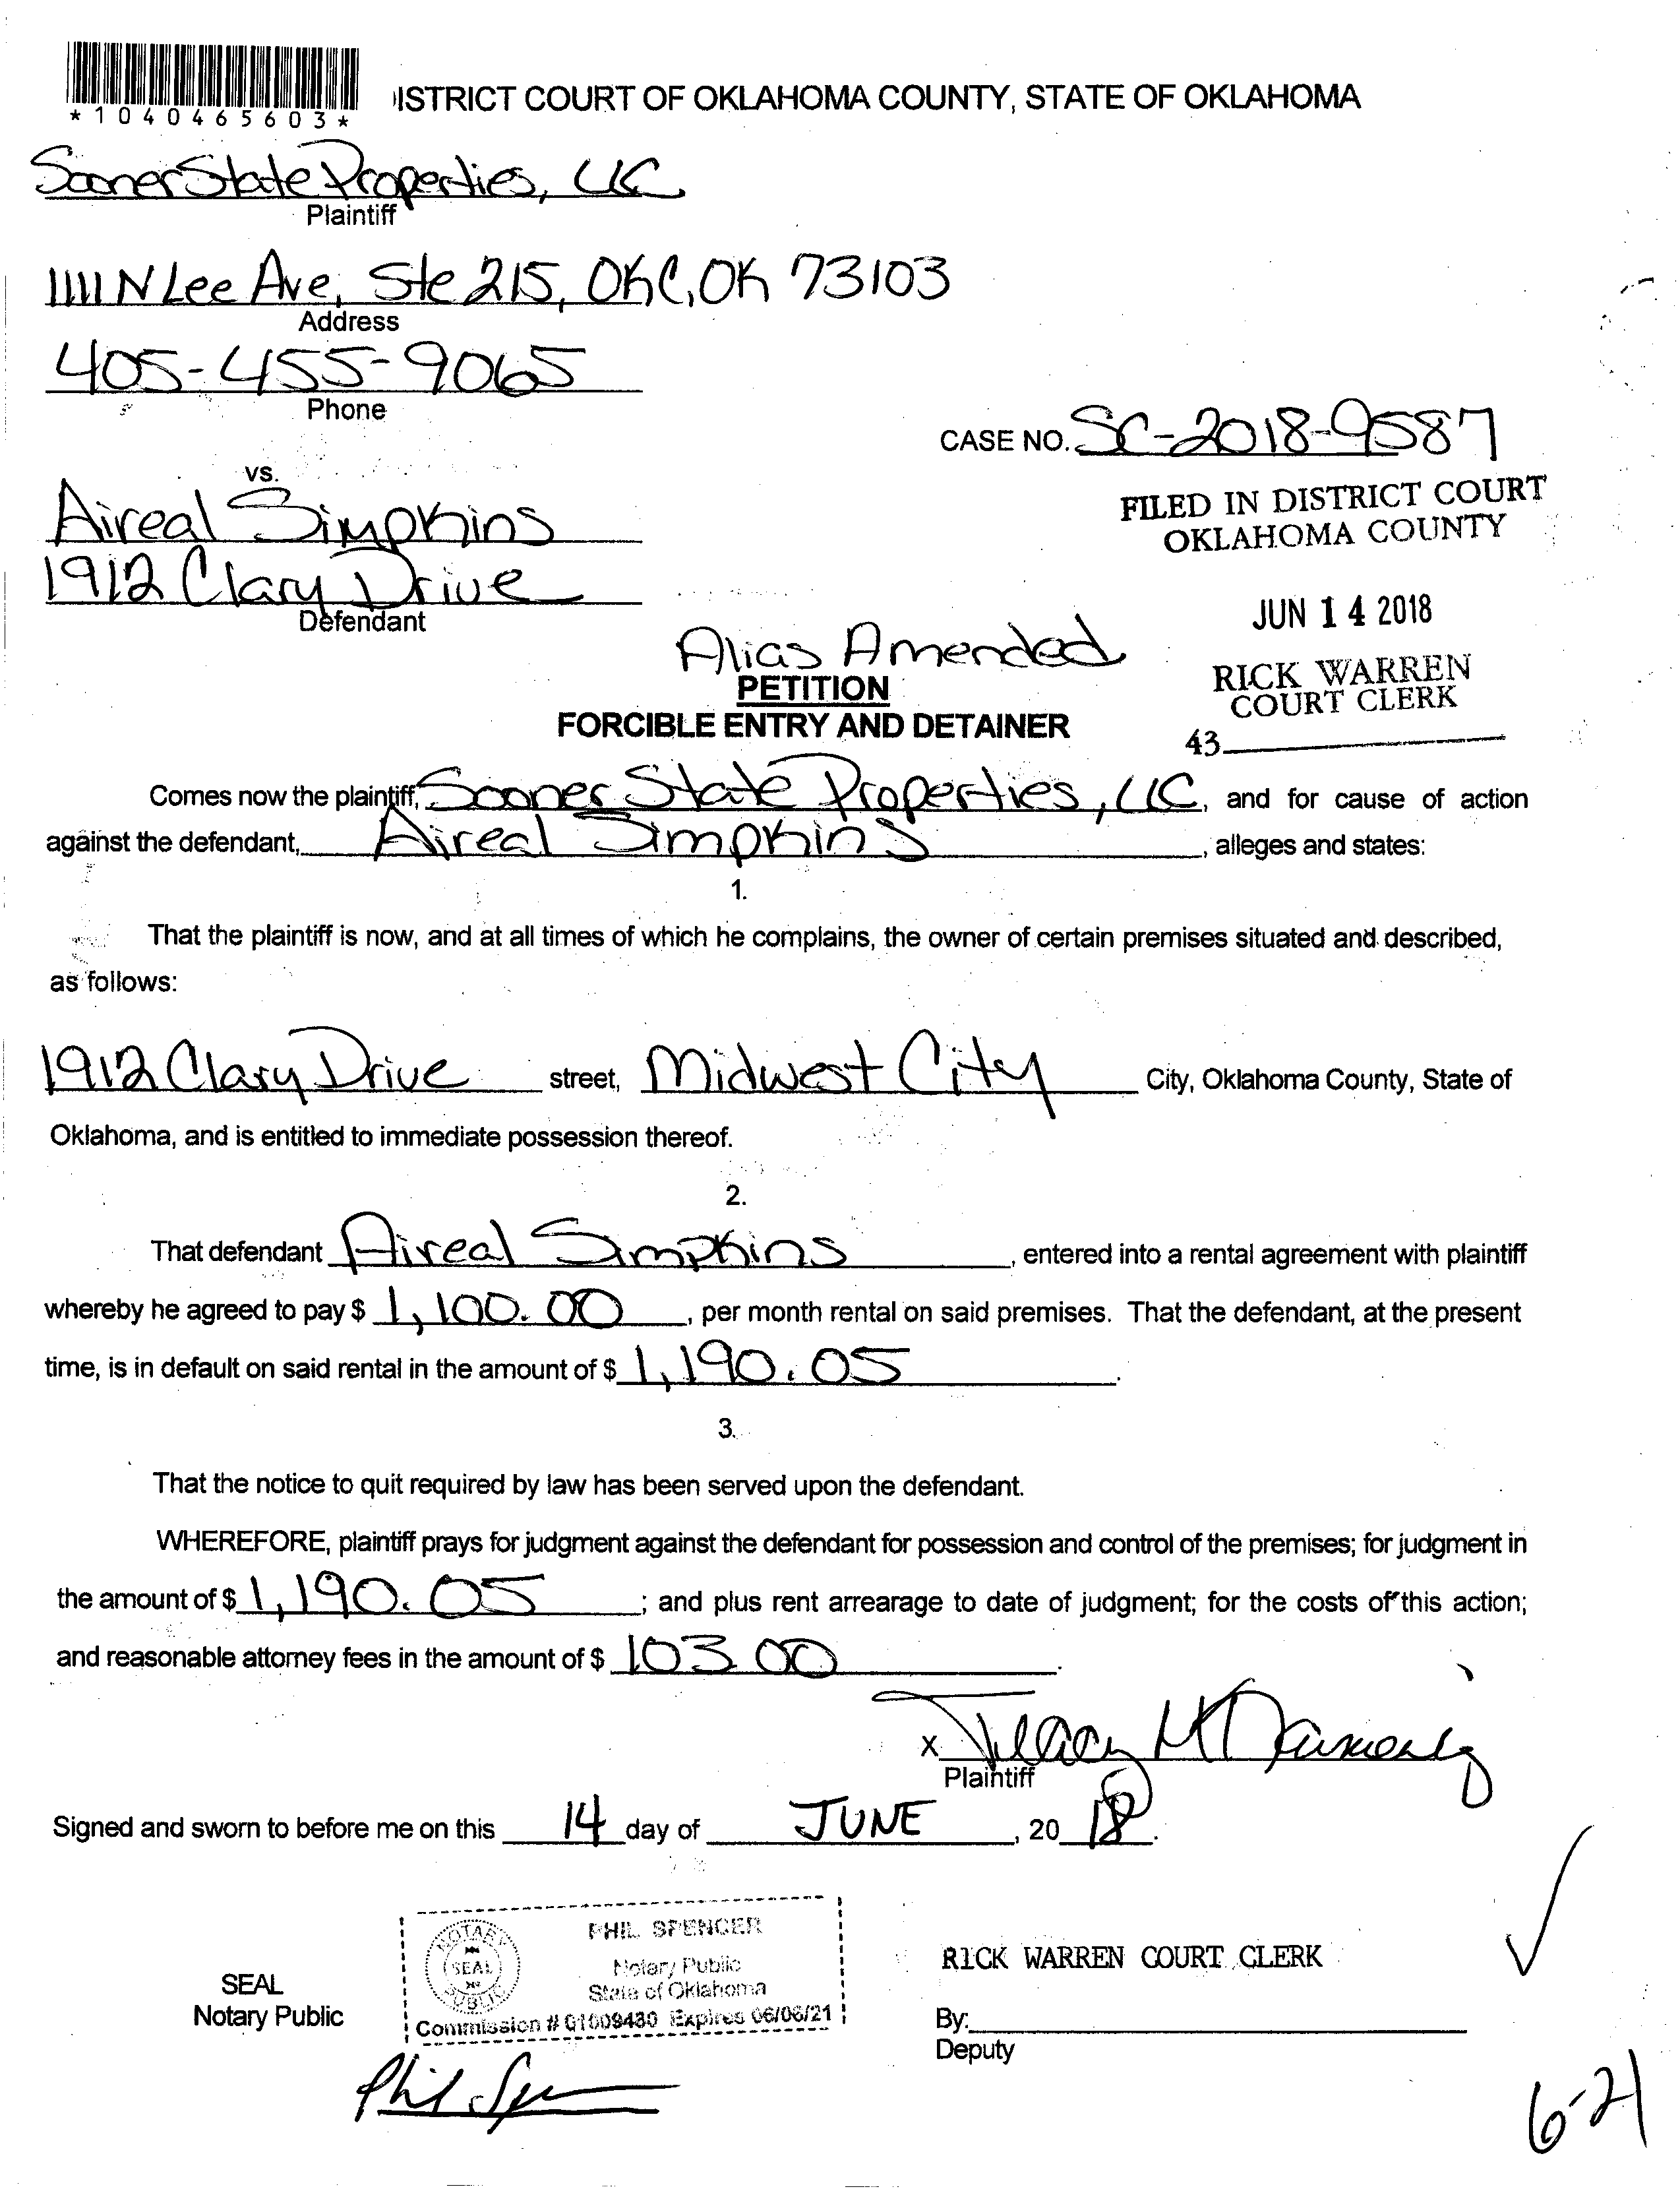 *1040465603*
ISTRICT COURT OF OKLAHOMA COUNTY, STATE OF OKLAHOMA
Sooner State Properties, LLC
Plaintiff
1111 N Lee Ave, Ste 215, OKC, OK 73103
Address
405-455-9065
Phone
CASE NO. SC-2018-9587
vs.
FILED IN DISTRICT COURT
OKLAHOMA COUNTY
Aireal Simpkins
1912 Clary Drive
Defendant
JUN 14 2018
Alias Amended
RICK WARREN
COURT CLERK
PETITION
FORCIBLE ENTRY AND DETAINER
43
Comes now the plaintiff, Sooner State Properties, LLC, and for cause of action
against the defendant, Aireal Simpkins, alleges and states:
1.
That the plaintiff is now, and at all times of which he complains, the owner of certain premises situated and described,
as follows:
1912 Clary Drive street, Midwest City City, Oklahoma County, State of
Oklahoma, and is entitled to immediate possession thereof.
2.
That defendant Aireal Simpkins, entered into a rental agreement with plaintiff
whereby he agreed to pay $ 1,100.00, per month rental on said premises. That the defendant, at the present
time, is in default on said rental in the amount of $ 1,190.05.
3.
That the notice to quit required by law has been served upon the defendant.
WHEREFORE, plaintiff prays for judgment against the defendant for possession and control of the premises; for judgment in
the amount of $ 1,190.05; and plus rent arrearage to date of judgment; for the costs of this action;
and reasonable attorney fees in the amount of $ 103 00.
X
Plaintiff
Signed and sworn to before me on this 14 day of JUNE, 20 18.
SEAL
Notary Public
NOTARY
SEAL
PUBLIC
PHIL SPENCER
Notary Public
State of Oklahoma
Commission # 01009480 Expires 06/06/21
RICK WARREN COURT CLERK
By:
Deputy
6-21